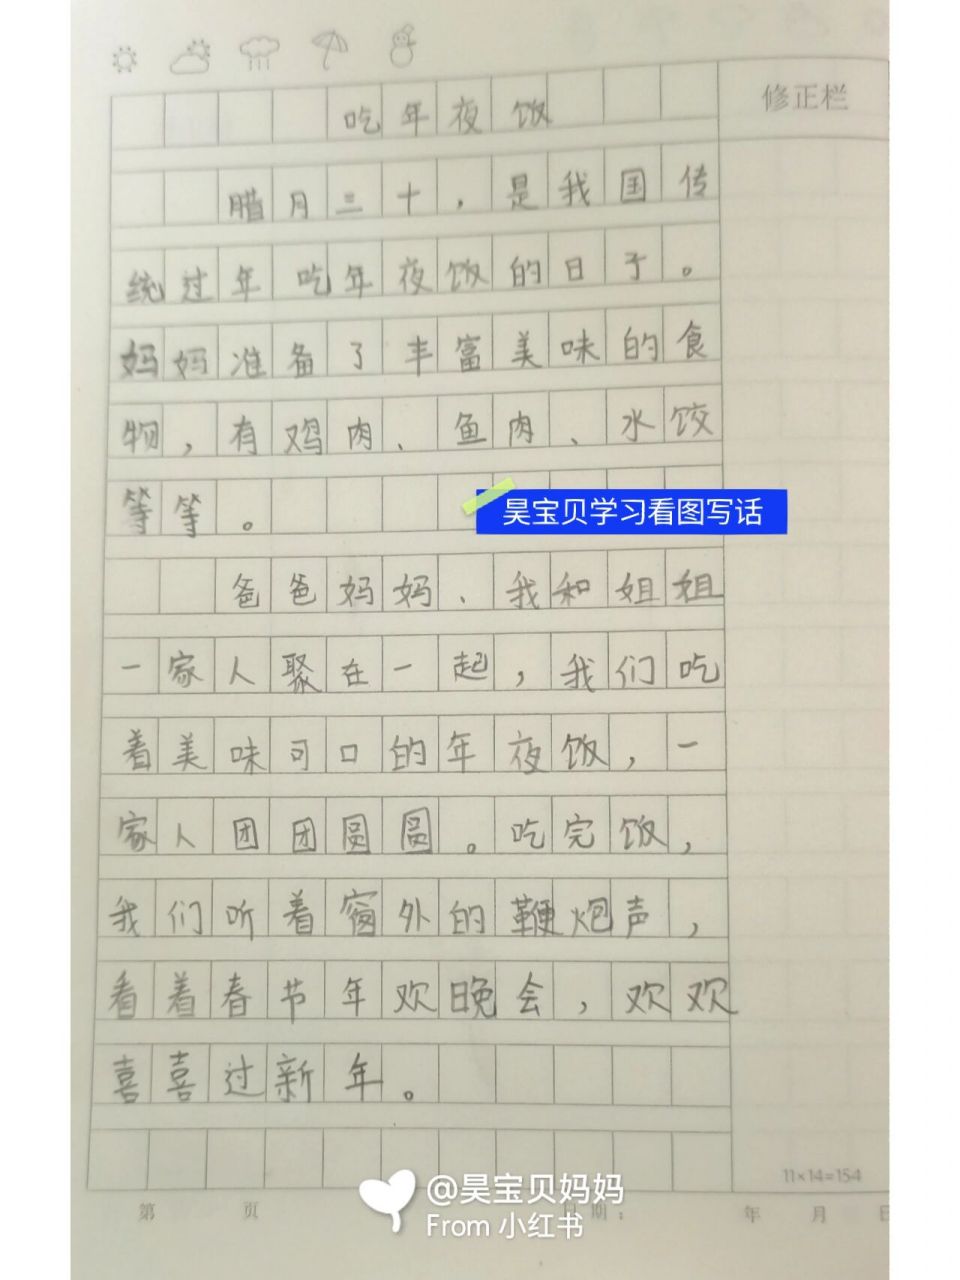 修正栏
吃年夜饭
腊月三十，是我国传
统过年吃年夜饭的日子。
妈妈准备了丰富美味的食
物，有鸡肉、鱼肉、水饺
等等。
昊宝贝学习看图写话
爸爸妈妈、我和姐姐
一家人聚在一起，我们吃
着美味可口的年夜饭，一
家人团团圆圆。吃完饭，
我们听着窗外的鞭炮声，
看着春节年欢晚会，欢欢
喜喜过新年。
11×14=154
第 页 日期： 年 月 日
@昊宝贝妈妈
From 小红书